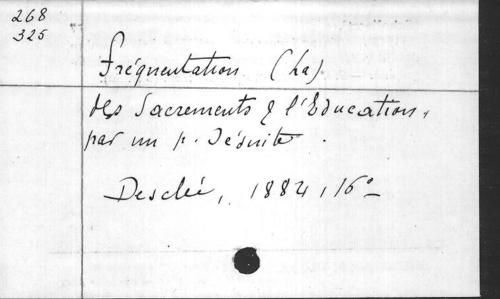 268
325
fréquentation (La)
des Sacrements & l'Education,
par un p. Jésuite.
Desclée, 1884, 16°